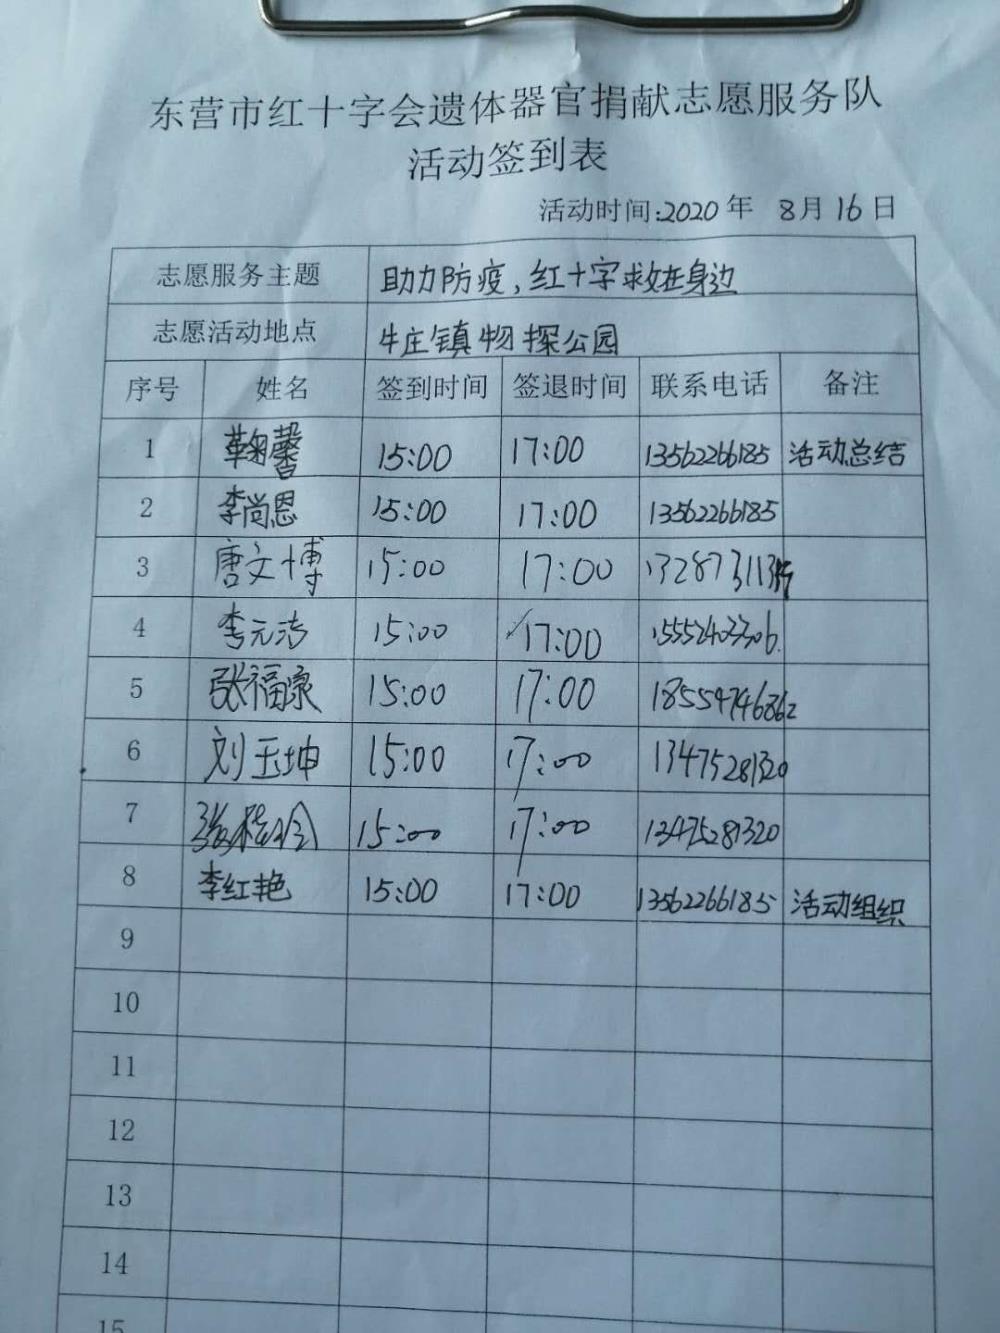 东营市红十字会遗体器官捐献志愿服务队
活动签到表
活动时间:2020年 8月16日
志愿服务主题 助力防疫,红十字救在身边
志愿活动地点 牛庄镇物探公园
序号 姓名 签到时间 签退时间 联系电话 备注
1 鞠馨 15:00 17:00 13562266185 活动总结
2 李尚恩 15:00 17:00 13562266185
3 唐文博 15:00 17:00
4 李元洁 15:00 17:00
5 张福豪 15:00 17:00 18554746862
6 刘玉坤 15:00 17:00 13475281320
7 15:00 17:00 13475281320
8 李红艳 15:00 17:00 13562266185 活动组织
9
10
11
12
13
14
15